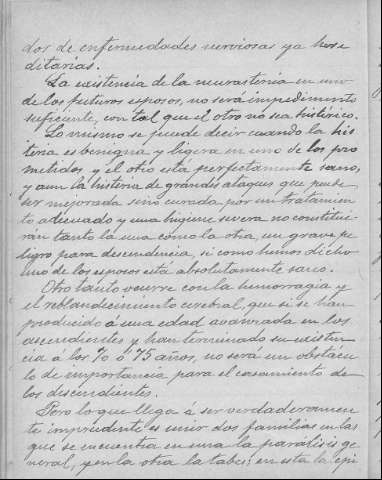 dos de enfermedades nerviosas ya here
ditarias.
La existencia de la neurastenia en uno
de los futuros esposos, no será impedimento
suficiente, con tal que el otro no sea histérico.
Lo mismo se puede decir cuando la his
teria es benigna y ligera en uno de los pro
metidos y el otro está perfectamente sano,
y aun la histeria de grandes ataques que puede
ser mejorada sino curada, por un tratamien
to adecuado y una higiene severa no constitui
rán tanto la una como la otra, un grave pe
ligro para descendencia, si como hemos dicho
uno de los esposos está absolutamente sano.
Otro tanto ocurre con la hemorragia y
el reblandecimiento cerebral, que si se han
producido á una edad avanzada en los
ascendientes y han terminado su existen
cia á los 70 ó 75 años, no será un obstácu
lo de importancia para el casamiento de
los descendientes.
Pero lo que llega á ser verdaderamen
te imprudente es unir dos familias en las
que se encuentra en una la parálisis ge
neral, y en la otra la tabes; en esta la epi